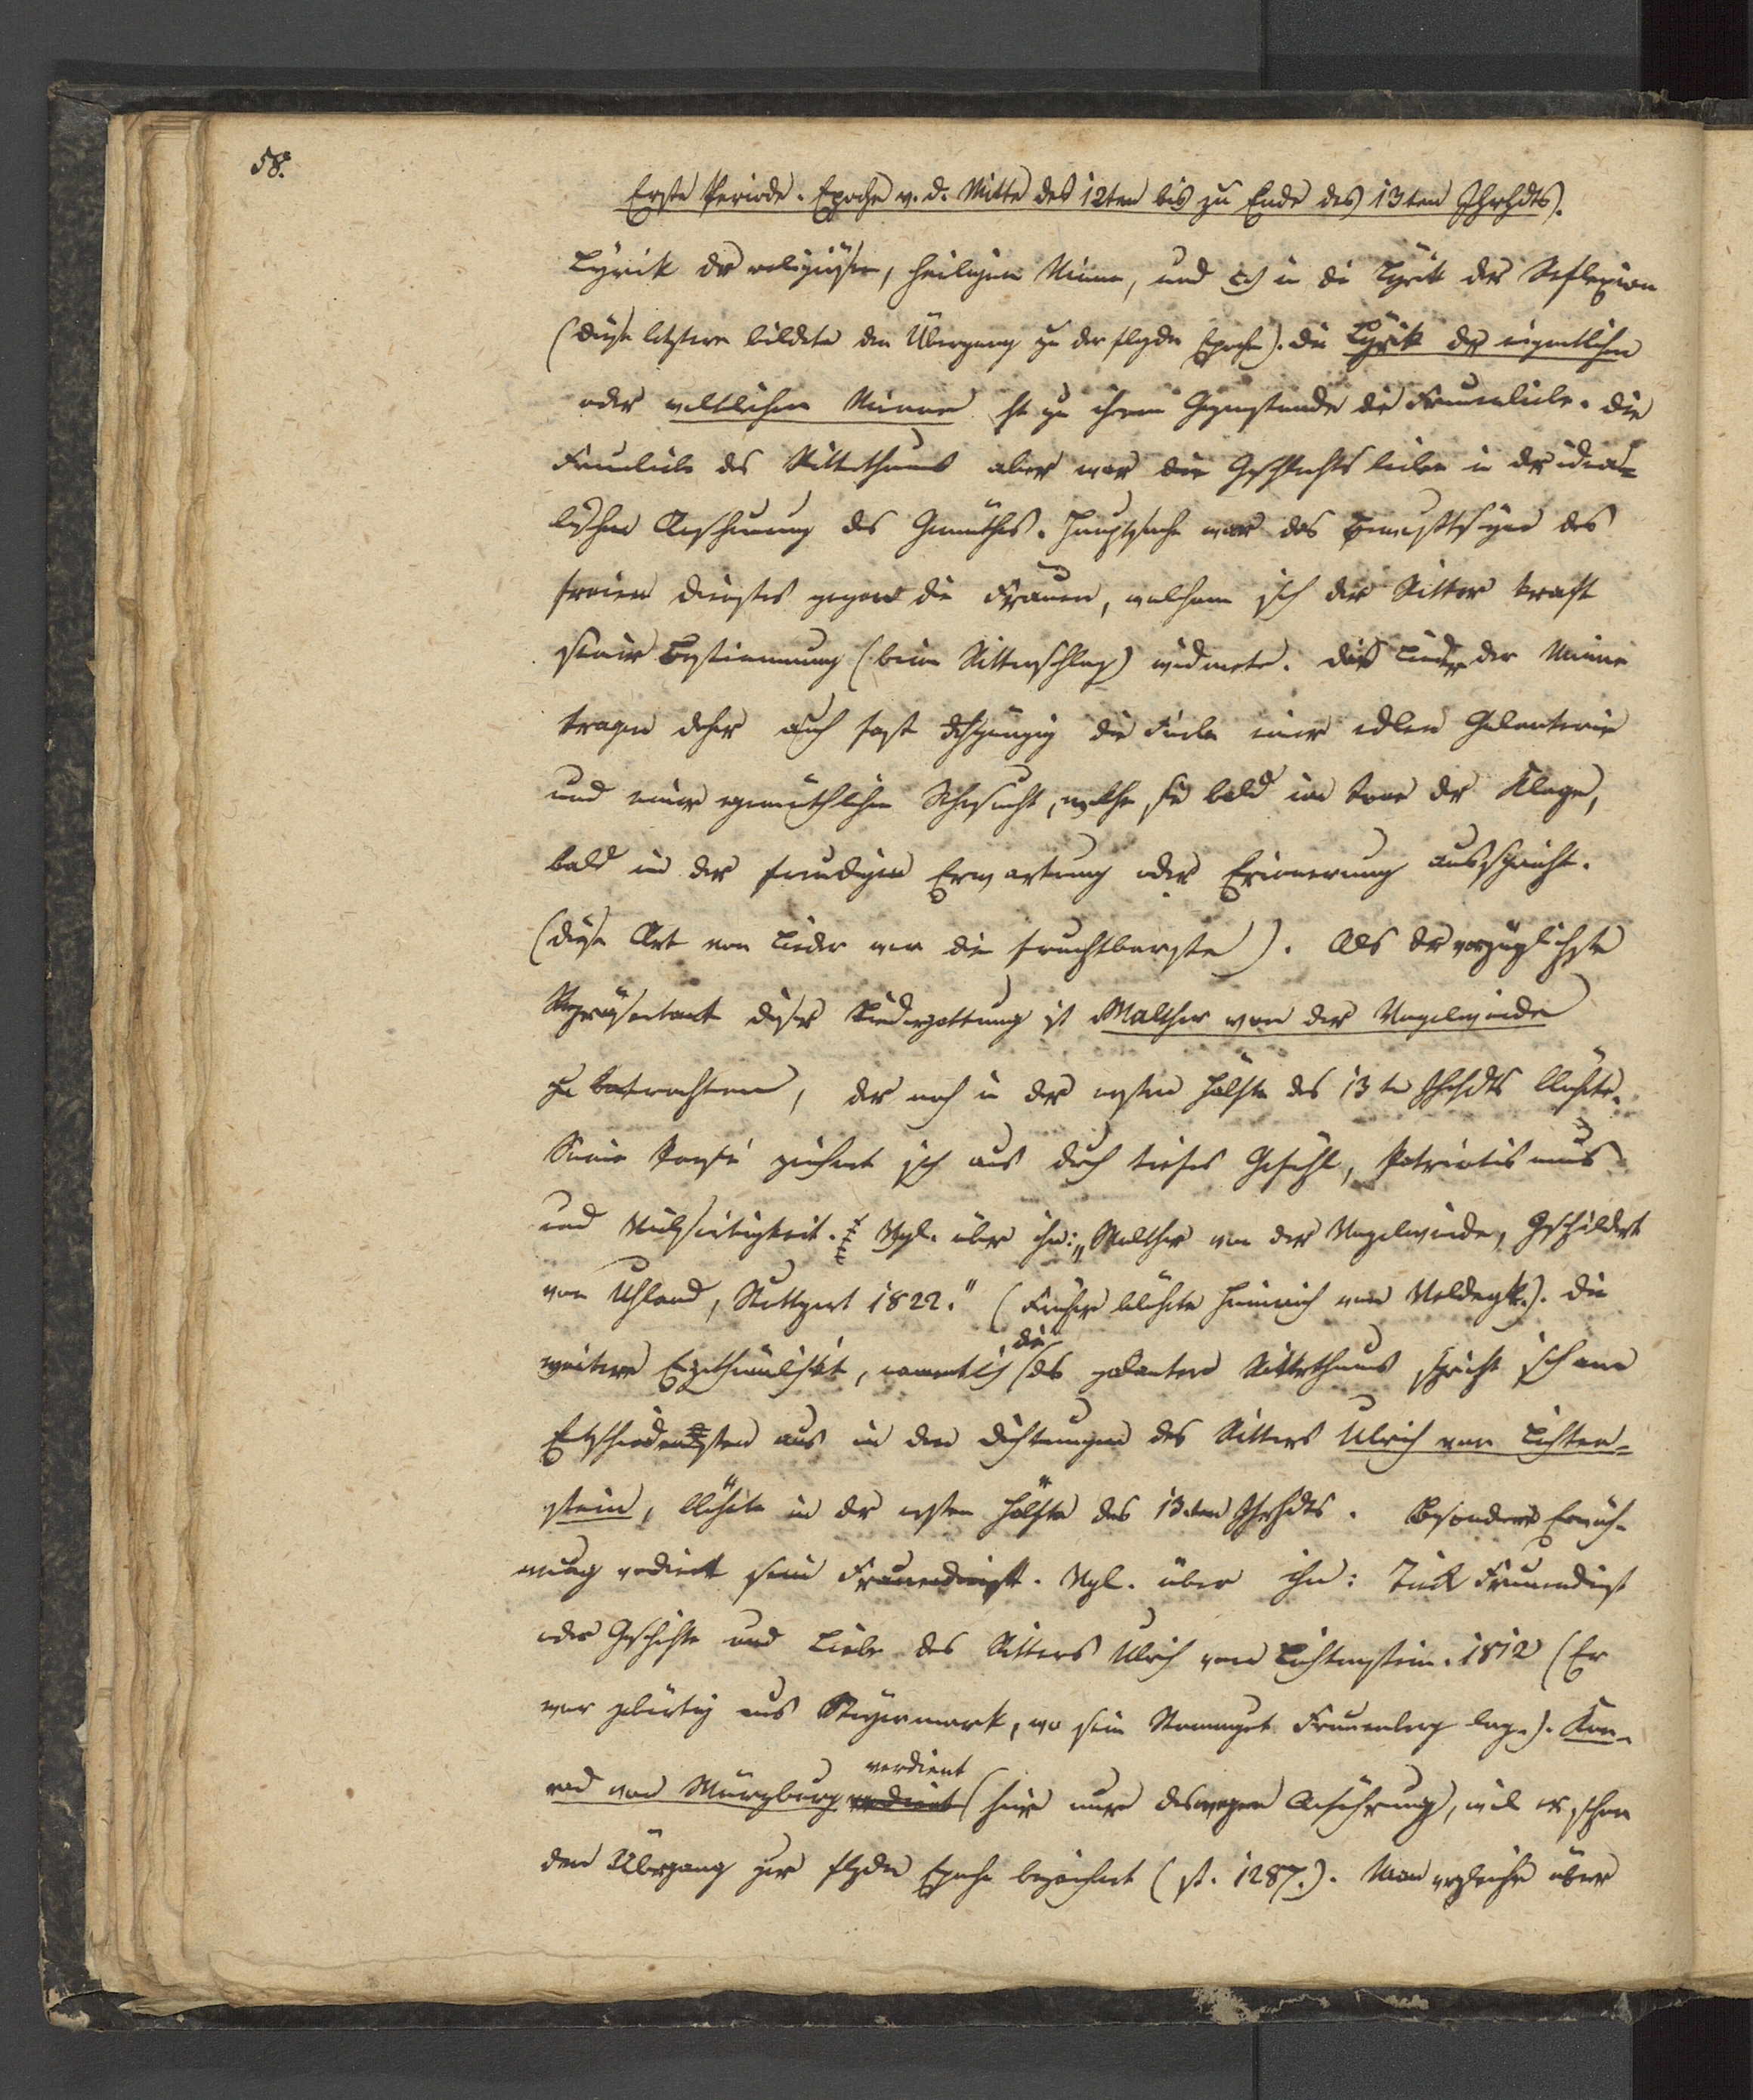 58.
Erste Periode. Epoche v. d. Mitte des 12ten bis zu Ende des 13ten Jhrhdts).
Lyrik der religiösen, heiligen Minne, und c) in die Lyrik der Reflexion
(diese letztere bildete den Übergang zu der flgden Epoche). Die Lyrik der eigentlichen
oder weltlichen Minne ht zu ihrem Gegenstande die Frauenliebe. Die
Frauenliebe des Ritterthums aber war die Geschlechtsliebe in der idea-
lischen Anschauung des Gemüthes. Hauptsache war das Bewußtseyn des
freien Dienstes gegen die Frauen, welchem sich der Ritter kraft
seiner Bestimmung (beim Ritterschlag) widmete. Die Lieder der Minne
tragen daher auch fast durchgängig die Farbe einer edlen Galanterie
und einer gemüthlichen Sehnsucht, welche sie bald im Tone der Klage,
bald in der freudigen Erwartung oder Erinnerung ausspricht.
(diese Art von Lieder war die fruchtbarste). Als der vorzüglichste
Repräsentant dieser Liedergattung ist Walther von der Vogelweide
zu betrachten, der noch in der ersten Hälfte des 13te Jhrhdts blühte.
Seine Poesie zeichnet sich aus durch tiefes Gefühl, Patriotismus
und Vielseitigkeit. Vgl. über ihn: „Walther von der Vogelweide, Geschildert
von Uhland, Stuttgart 1822." (Früher blühte Heinrich von Veldegk.). Die
weitere Eigenthümlichkt, namentlich die des galanten Ritterthums spricht sich am
Entschiedensten aus in den Dichtungen des Ritters Ulrich von Lichten-
stein, blühte in der ersten Hälfte des 13ten Jhrhdts. Besondere Erwäh-
nung verdient sein Frauendienst. Vgl. über ihn: Tieck Frauendienst
oder Geschichte und Liebe des Ritters Ulrich von Lichtenstein. 1812 (Er
war gebürtig aus Steyermark, wo sein Stammgut Frauenberg lag.). Kon-
rad von Würzburg verdient hier nur deswegen Anführung, weil er schon
den Übergang zur flgden Epoche bezeichnet (st. 1287.). Man vergleiche über